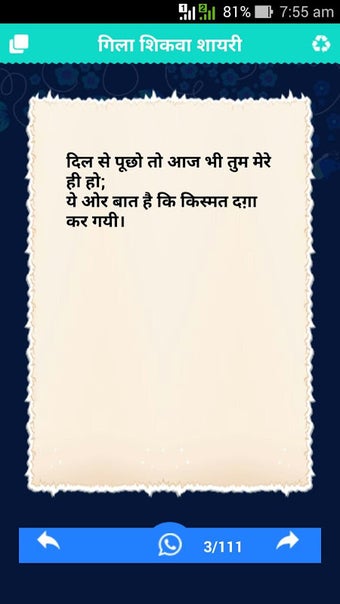 81% 7:55 am
गिला शिकवा शायरी
दिल से पूछो तो आज भी तुम मेरे
ही हो;
ये ओर बात है कि किस्मत दग़ा
कर गयी।
3/111